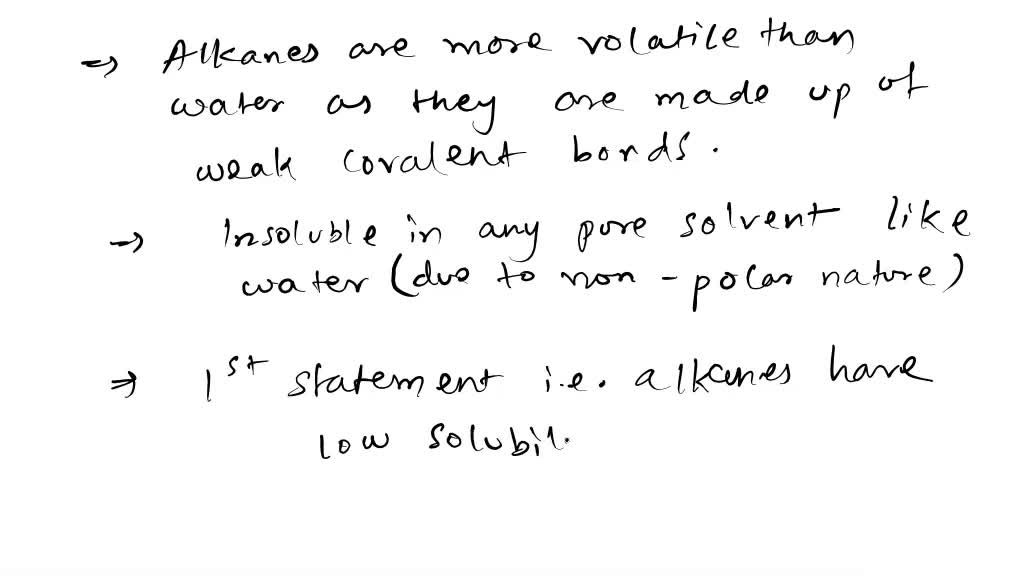 ⇒ Alkanes are more volatile than
water as they are made up of
weak covalent bonds.
→ Insoluble in any pure solvent like
water (due to non-polar nature)
⇒ 1st statement i.e. alkanes have
low solubil.